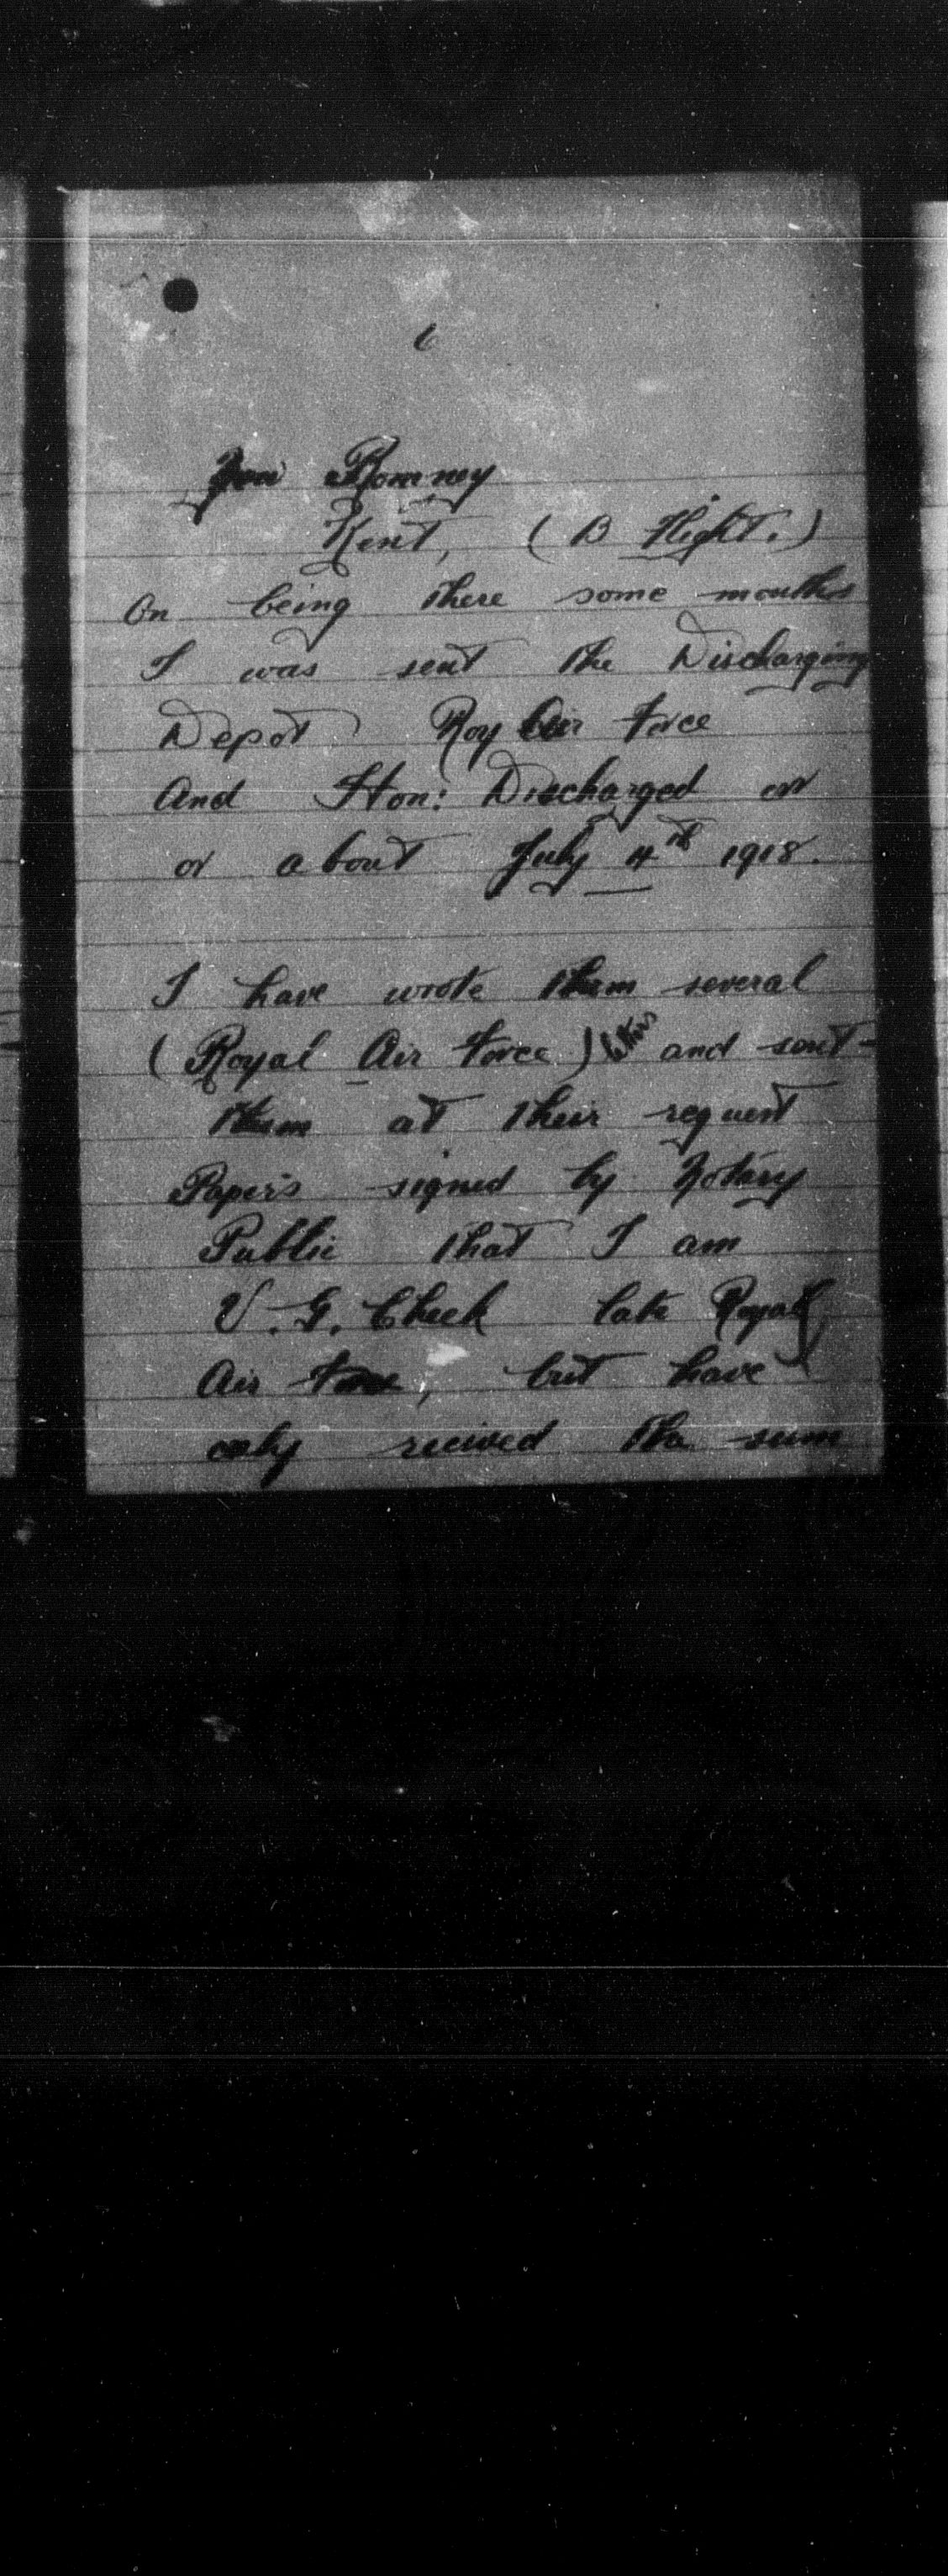 6
Romney
Kent, (B Flight.)
On being there some months
I was sent the Discharging
Depot Roy Air Force
And Hon: Discharged on
or about July 4th 1918.
I have wrote them several
(Royal Air Force) letters and sent
them at their request
Papers signed by Notary
Public that I am
V. G. Cheek late Royal
Air Force, but have
only recived the sum